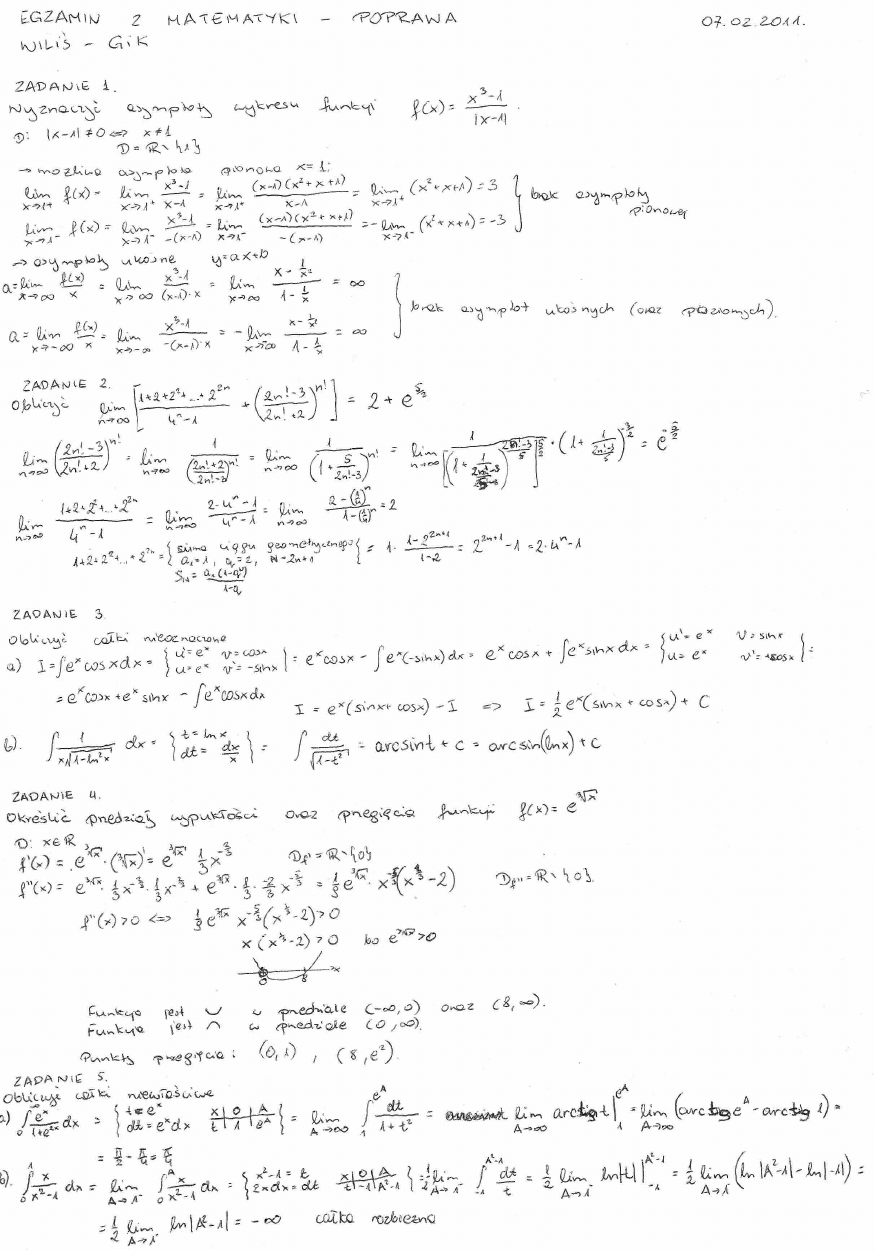 EGZAMIN Z MATEMATYKI - POPRAWA 07.02.2011.
WILiŚ - GiK
ZADANIE 1.
Wyznaczyć asymptoty wykresu funkcji f(x) = (x³-1)/|x-1|.
D: |x-1| ≠ 0 <=> x ≠ 1
D = ℝ \ {1}
→ możliwa asymptota pionowa x=1:
lim_{x→1⁺} f(x) = lim_{x→1⁺} (x³-1)/(x-1) = lim_{x→1⁺} (x-1)(x²+x+1)/(x-1) = lim_{x→1⁺} (x²+x+1) = 3 } brak asymptoty pionowej
lim_{x→1⁻} f(x) = lim_{x→1⁻} (x³-1)/(-(x-1)) = lim_{x→1⁻} (x-1)(x²+x+1)/(-(x-1)) = -lim_{x→1⁻} (x²+x+1) = -3
→ asymptoty ukośne y=ax+b
a = lim_{x→∞} f(x)/x = lim_{x→∞} (x³-1)/((x-1)·x) = lim_{x→∞} (x - 1/x²)/(1 - 1/x) = ∞ } brak asymptot ukośnych (oraz poziomych).
a = lim_{x→-∞} f(x)/x = lim_{x→-∞} (x³-1)/(-(x-1)·x) = -lim_{x→-∞} (x - 1/x²)/(1 - 1/x) = ∞
ZADANIE 2.
Obliczyć lim_{n→∞} [(1+2+2²+...+2²ⁿ)/(4ⁿ-1) + ((2n!-3)/(2n!+2))^{n!}] = 2 +
lim_{n→∞} ((2n!-3)/(2n!+2))^{n!} = lim_{n→∞} 1/((2n!+2)/(2n!-3))^{n!} = lim_{n→∞} 1/(1 + 5/(2n!-3))^{n!} = lim_{n→∞} 1/[(1 + 1/((2n!-3)/5))^{(2n!-3)/5}]^{5/2} · (1 + 1/((2n!-3)/5))^{-3/2} = e^{-5/2}
lim_{n→∞} (1+2+2²+...+2²ⁿ)/(4ⁿ-1) = lim_{n→∞} (2·4ⁿ-1)/(4ⁿ-1) = lim_{n→∞} (2-(1/4)ⁿ)/(1-(1/4)ⁿ) = 2
1+2+2²+...+2²ⁿ = { suma ciągu geometycznego a₁=1, q=2, N=2n+1 S_N = a₁(1-q^N)/(1-q) } = 1·(1-2²ⁿ⁺¹)/(1-2) = 2²ⁿ⁺¹-1 = 2·4ⁿ-1
ZADANIE 3.
Obliczyć całki nieoznaczone
a) I = ∫eˣcosxdx = { u'=eˣ v=cosx u=eˣ v'=-sinx } = eˣcosx - ∫eˣ(-sinx)dx = eˣcosx + ∫eˣsinxdx = { u'=eˣ v=sinx u=eˣ v'=+cosx } =
= eˣcosx + eˣsinx - ∫eˣcosxdx
I = eˣ(sinx+cosx) - I => I = ½eˣ(sinx+cosx) + C
b). ∫ 1/(x√(1-ln²x)) dx = { t=lnx dt=dx/x } = ∫ dt/√(1-t²) = arcsint + c = arcsin(lnx) + C
ZADANIE 4.
Określić przedziały wypukłości oraz przegięcia funkcji f(x) = e^{∛x}
D: x∈ℝ
f'(x) = e^{∛x}·(∛x)' = e^{∛x} ⅓x^{-2/3} D_f' = ℝ \ {0}
f''(x) = e^{∛x}·⅓x^{-2/3}·⅓x^{-2/3} + e^{∛x}·⅓·(-2/3)x^{-5/3} = 1/9 e^{∛x}·x^{-5/3}(x^{1/3}-2) D_f'' = ℝ \ {0}.
f''(x)>0 <=> 1/9 e^{∛x} x^{-5/3}(x^{1/3}-2)>0
x(x^{1/3}-2)>0 bo e^{∛x}>0
0 8 x
Funkcja jest ∪ w przedziale (-∞,0) oraz (8,∞).
Funkcja jest ∩ w przedziale (0,∞).
Punkty przegięcia: (0,1), (8,e²).
ZADANIE 5.
Obliczyć całki niewłaściwe
a) ∫₀^∞ eˣ/(1+e²ˣ) dx = { t=eˣ dt=eˣdx x|0|A t|1|e^A } = lim_{A→∞} ∫₁^{e^A} dt/(1+t²) = lim_{A→∞} arctgt|₁^{e^A} = lim_{A→∞} (arctge^A - arctg1) =
= π/2 - π/4 = π/4
b). ∫₀¹ x/(x²-1) dx = lim_{A→1⁻} ∫₀^A x/(x²-1) dx = { x²-1=t 2xdx=dt x|0|A t|-1|A²-1 } = ½lim_{A→1⁻} ∫₋₁^{A²-1} dt/t = ½ lim_{A→1⁻} ln|t| |₋₁^{A²-1} = ½ lim_{A→1⁻} (ln|A²-1| - ln|-1|) =
= ½ lim_{A→1⁻} ln|A²-1| = -∞ całka rozbieżna